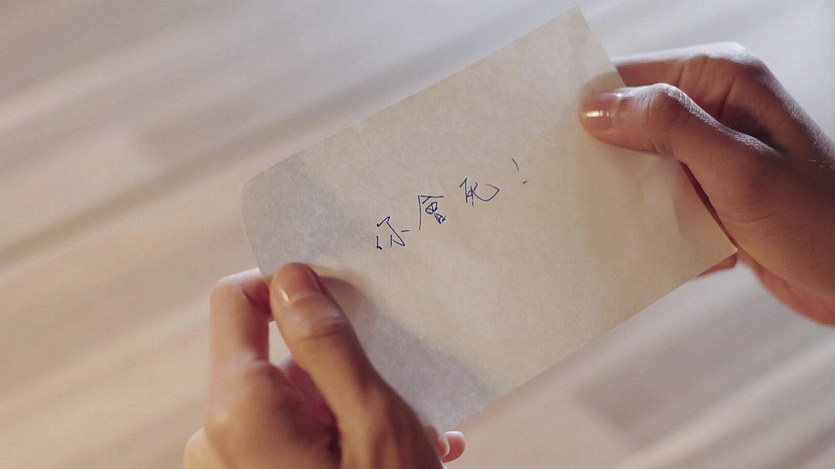 你會死!